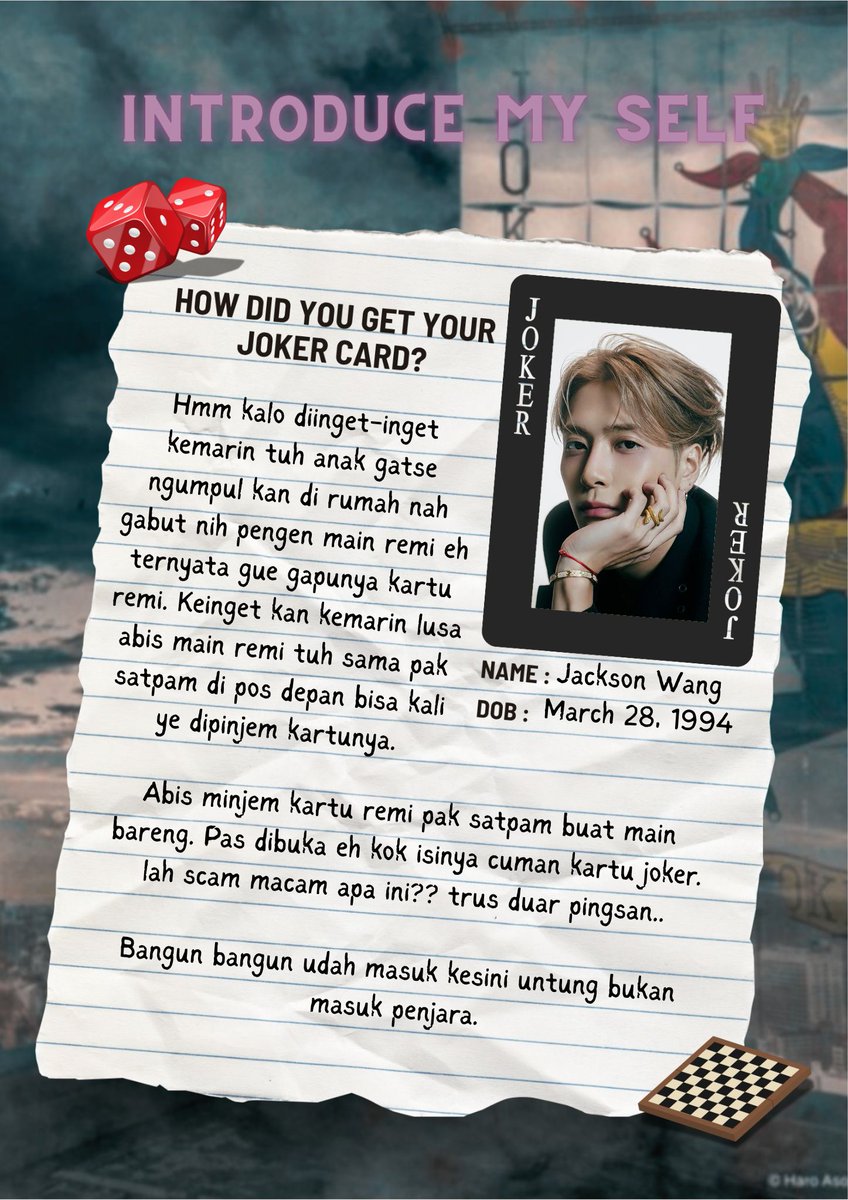 INTRODUCE MY SELF
HOW DID YOU GET YOUR
JOKER CARD?
Hmm kalo diinget-inget
kemarin tuh anak gatse
ngumpul kan di rumah nah
gabut nih pengen main remi eh
ternyata gue gapunya kartu
remi. Keinget kan kemarin lusa
abis main remi tuh sama pak
satpam di pos depan bisa kali
ye dipinjem kartunya.
JOKER
JOKER
NAME : Jackson Wang
DOB : March 28, 1994
Abis minjem kartu remi pak satpam buat main
bareng. Pas dibuka eh kok isinya cuman kartu joker.
lah scam macam apa ini?? trus duar pingsan..
Bangun bangun udah masuk kesini untung bukan
masuk penjara.
© Haro Aso